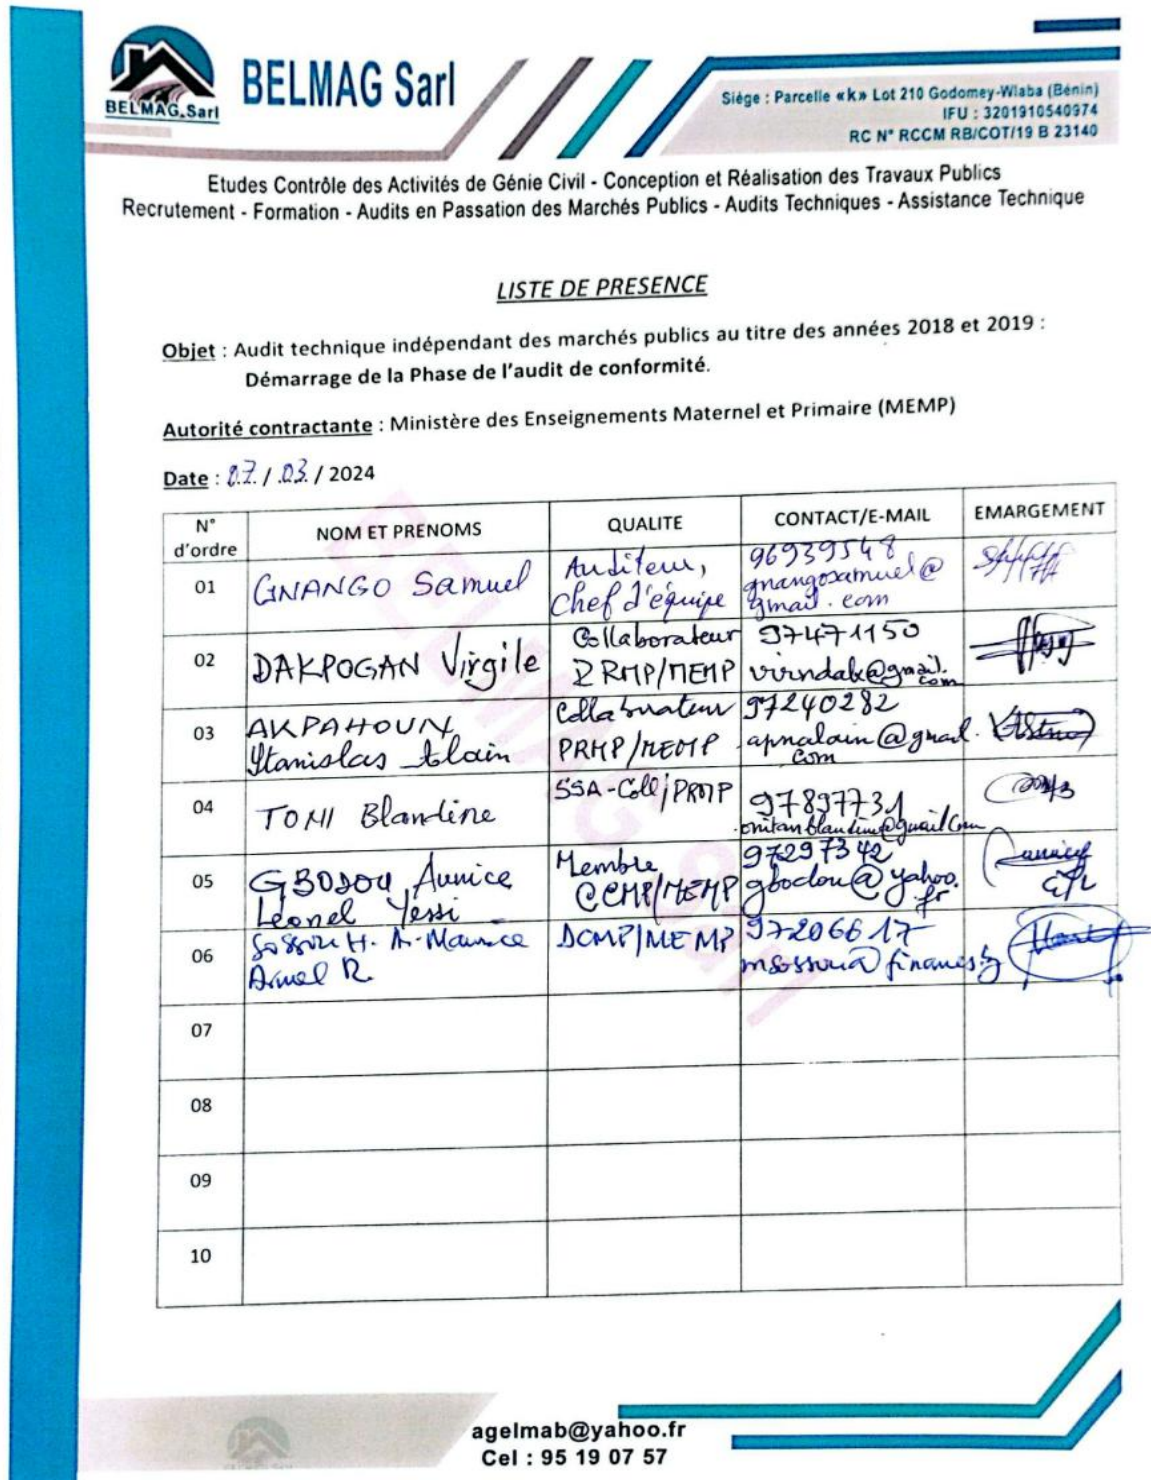 BELMAG.Sarl
BELMAG Sarl
Siège : Parcelle «k» Lot 210 Godomey-Wlaba (Bénin)
IFU : 3201910540974
RC N° RCCM RB/COT/19 B 23140
Etudes Contrôle des Activités de Génie Civil - Conception et Réalisation des Travaux Publics
Recrutement - Formation - Audits en Passation des Marchés Publics - Audits Techniques - Assistance Technique
LISTE DE PRESENCE
Objet : Audit technique indépendant des marchés publics au titre des années 2018 et 2019 :
Démarrage de la Phase de l'audit de conformité.
Autorité contractante : Ministère des Enseignements Maternel et Primaire (MEMP)
Date : 07. / .03. / 2024
N° d'ordre NOM ET PRENOMS QUALITE CONTACT/E-MAIL EMARGEMENT
01 GNANGO Samuel Auditeur, 96939548
Chef d'équipe gnangosamuel@
gmail.com
02 DAKPOGAN Virgile Collaborateur 97471150
PRMP/MEMP virndak@gmail.
com
03 AKPAHOUN Collaborateur 97240282
Stanislas Alain PRMP/MEMP apnalain@gmail.
com
04 TONI Blandine SSA-Coll/PRMP 97897731
onitanblandine@gmail.com
05 GBODOU Aunice Membre 97297342
Léonel Yessi CCMP/MEMP gbodou@yahoo.
fr
06 Sossou H. A. Maurice DCMP/MEMP 97206617
Armel R. msossou@finances.bj
07
08
09
10
BELMAG Sarl
agelmab@yahoo.fr
Cel : 95 19 07 57